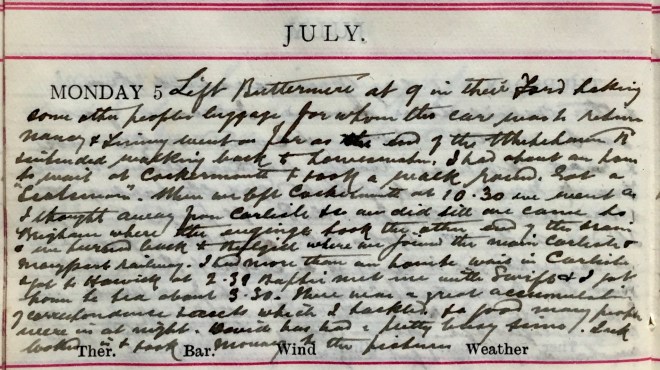 JULY.
MONDAY 5 Left Buttermere at 9 in their Ford taking
some other peoples luggage for whom the car was to return
Nancy & went as far as the end of the R
intended walking back to . I had about an hour
to wait at Cockermouth & took a walk round. Got a
"Scotsman". When we left Cockermouth at 10.30 we went as
I thought away from Carlisle & so we did till we came to
Brigham where the engine took the other end of the train
& we turned back to where we joined the main Carlisle &
Maryport railway. I had more than an hour to wait in Carlisle
Got to Hawick at 2.39 met me with & I got
home to tea about 3.30. There was a great accumulation
of correspondence which I tackled. A good many people
were in at night. David has had a pretty busy time. Jack
looked in & took to the pictures
Ther. Bar. Wind Weather